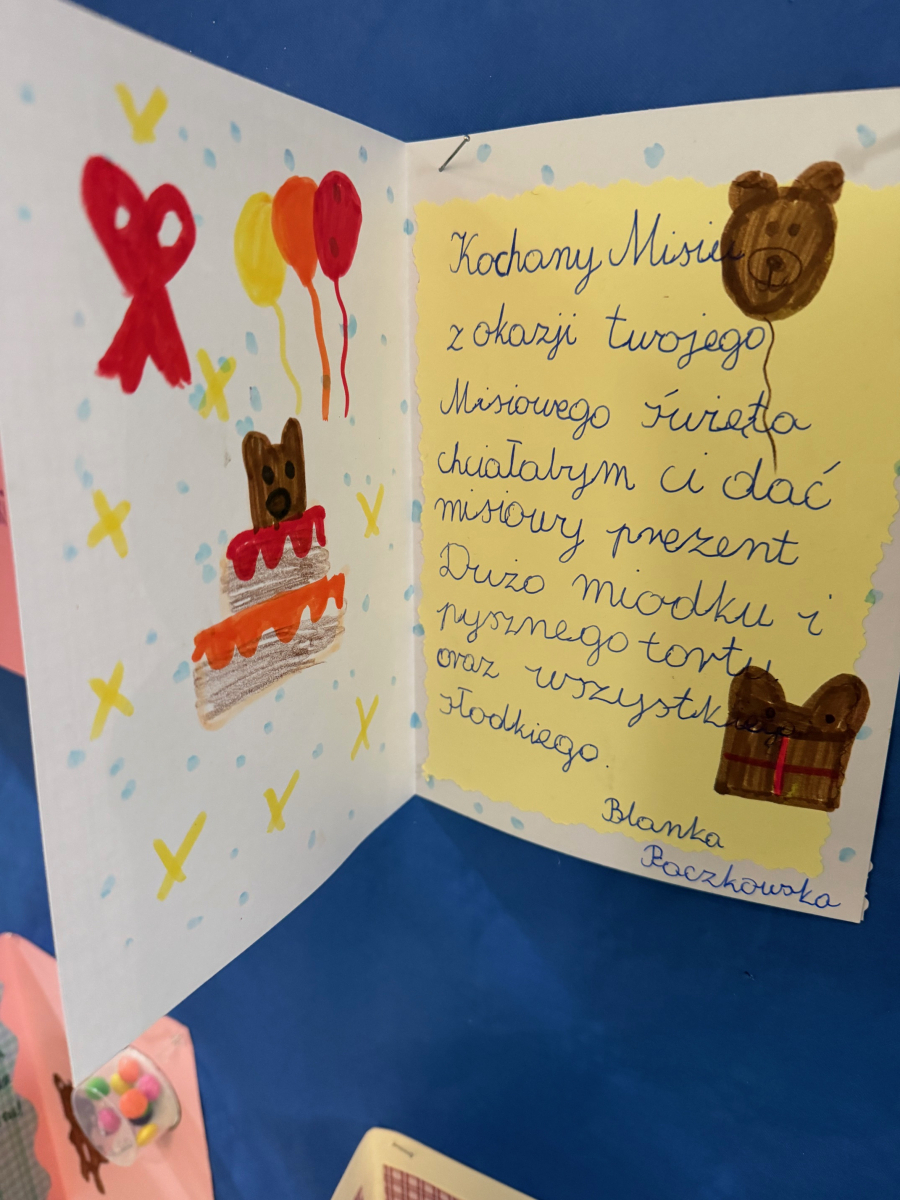 Kochany Misiu
z okazji twojego
Misiowego święta
chciałabym ci dać
misiowy prezent
Dużo miodku i
pysznego tortu
oraz wszystkiego
słodkiego.
Blanka
Paczkowska